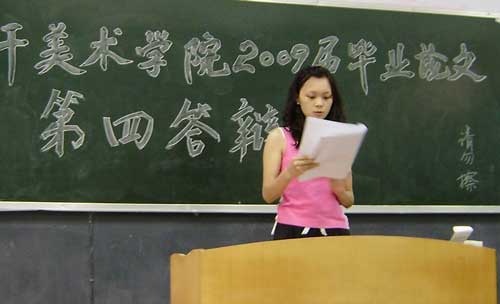 美术学院2009届毕业论文
第四答辩
请勿擦